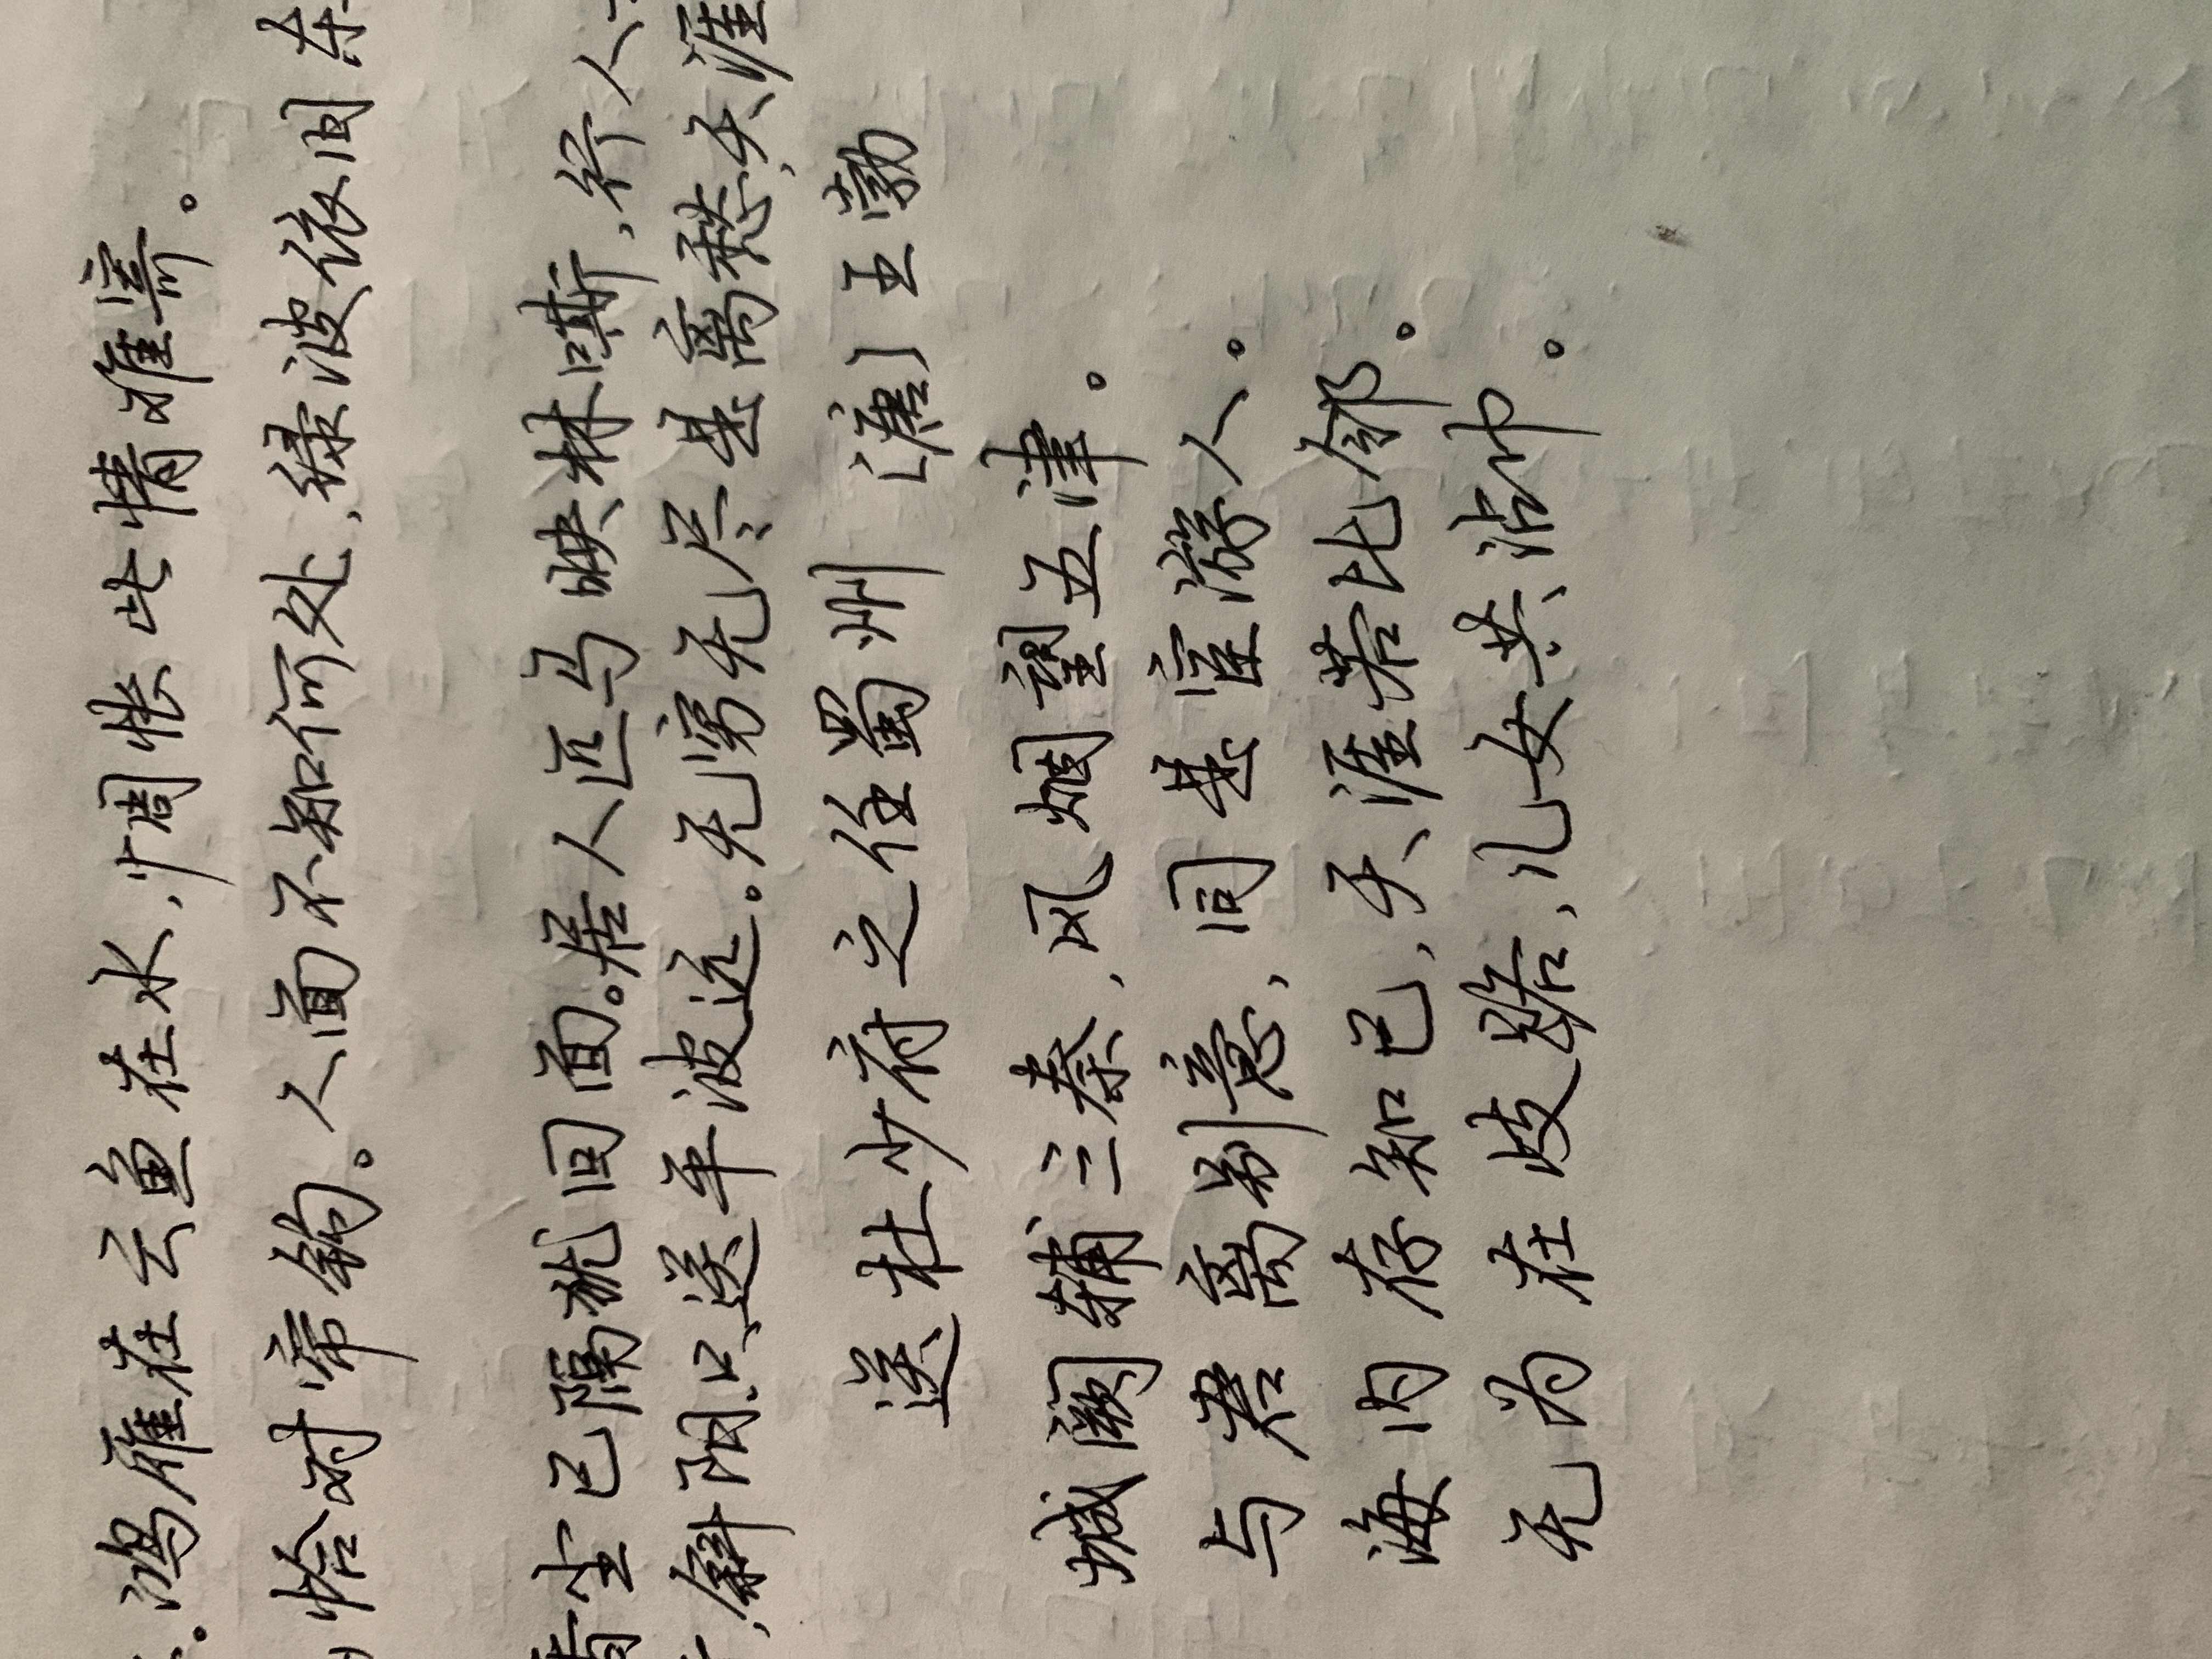 。鸿雁在云鱼在水,惆怅此情难寄。
恰对帘钩。人面不知何处,绿波依旧东
香尘已隔犹回面。居人匹马映林嘶,行人
,斜阳只送平波远。无穷无尽是离愁,天涯
送杜少府之任蜀州 [唐]王勃
城阙辅三秦,风烟望五津。
与君离别意,同是宦游人。
海内存知己,天涯若比邻。
无为在歧路,儿女共沾巾。